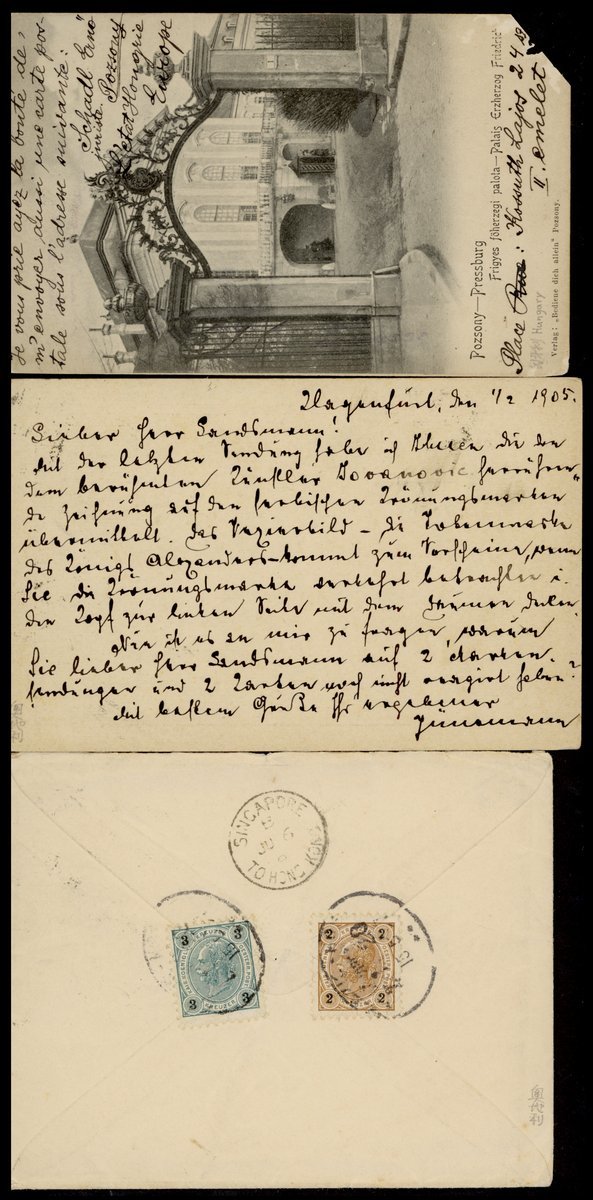 Je vous prie ayez la bonté de,
m'envoyer aussi une carte pos-
tale sous l'adresse suivante:
Schadl Ernő
Pozsony
Hongrie
Europe
Pozsony—Pressburg
Frigyes főherzegi palota—Palais Erzherzog Friedrich
Place : Kossuth Lajos 24
II. emelet
匈牙利 Hungary
Verlag: „Bediene dich allein" Pozsony.
Klagenfurt, den 1/2 1905.
Lieber Herr Landsmann!
Mit der letzten Sendung habe ich Ihnen die von
dem berühmten Künstler Jovanovic herrühren-
de Zeichnung auf den serbischen Krönungsmarken
übermittelt. Das Vexierbild – die Totenmaske
des Königs Alexanders – kommt zum Vorscheine, wenn
Sie die Krönungsmarke verkehrt betrachten u.
den Kopf zur linken Seite mit dem Daumen decken.
Nun ist es an mir zu fragen, warum
Sie lieber Herr Landsmann auf 2 Marken-
sendungen und 2 Karten noch nicht reagirt haben?
Mit bestem Gruße Ihr ergebener
SINGAPORE
TO HONG KONG
3 3
KREUZER
3 3
KREUZER
2 2
2 2
奧地利